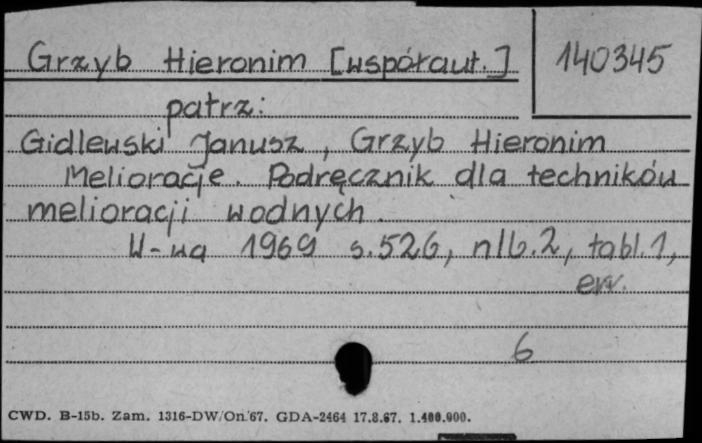 Grzyb Hieronim [współaut.]
140345
patrz:
Gidlewski Janusz, Grzyb Hieronim
Melioracje. Podręcznik dla techników
melioracji wodnych.
W-wa 1969 s.526, nlb.2, tabl.1,
err.
6
CWD. B-15b. Zam. 1316-DW/On.'67. GDA-2464 17.8.67. 1.400.000.